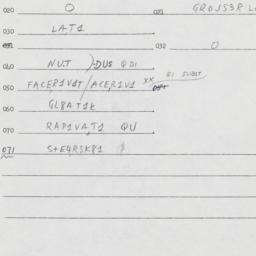 020 O 021 GROJS3R L
030 LAT1
031 032 O
040 NUT )-DUS QDI
050 FACER1VAT/ACER1V1 XX 051 QI SUBST
060 GL8AT1E
070 RAP1VAT1 QU
071 S+E4RSK81